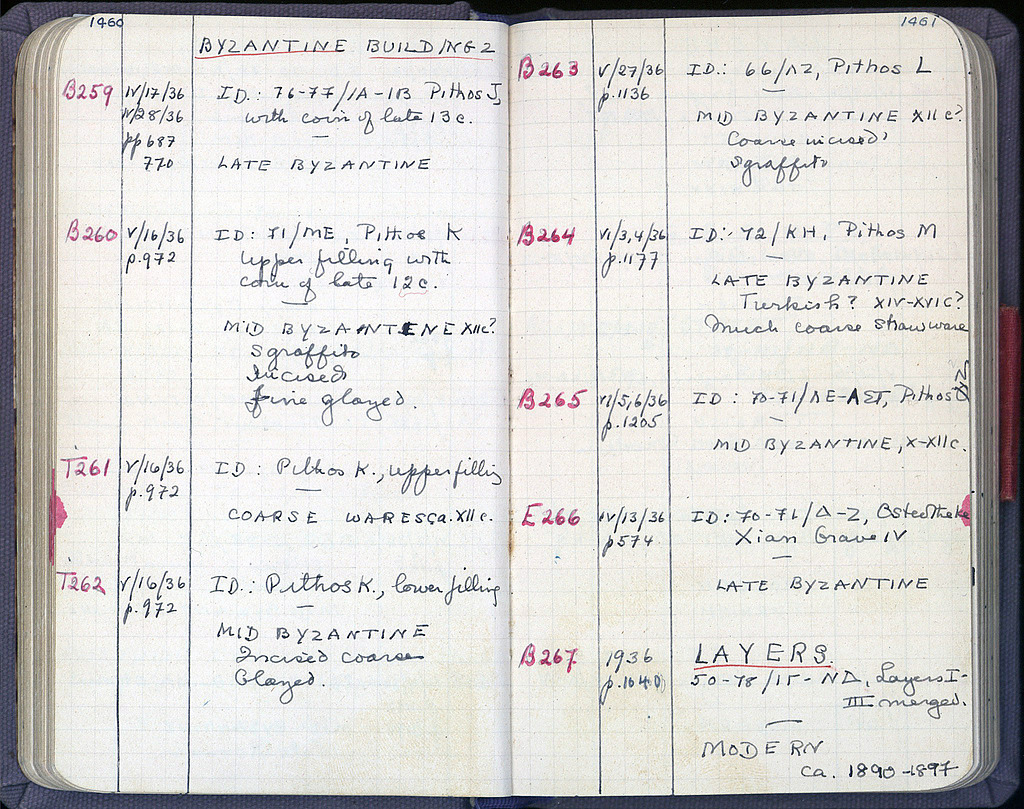 1460
BYZANTINE BUILDING 2
B259 IV/17/36 ID.: 76-77/IA-IB Pithos J,
IV/28/36 with coin of late 13c.
pp 687
770 LATE BYZANTINE
B260 V/16/36 ID: 71/ME, Pithos K
p.972 upper filling with
coin of late 12c.
MID BYZANTENE XIIc?
Sgraffito
Incised
Fine glazed.
T261 V/16/36 ID: Pithos K., upper filling
p.972
COARSE WARES ca. XII c.
T262 V/16/36 ID.: Pithos K., lower filling
p.972
MID BYZANTINE
Incised coarse
Glazed.
1461
B263 V/27/36 ID.: 66/ΛZ, Pithos L
p.1136
MID BYZANTINE XII c?
Coarse incised
Sgraffito
B264 VI/3,4/36 ID: 72/KH, Pithos M
p.1177
LATE BYZANTINE
Turkish? XIV-XVI c?
Much coarse straw ware
B265 VI/5,6/36 ID: 70-71/ΛE-ΛΣΤ, Pithos
p.1205
MID BYZANTINE, X-XII c.
E266 IV/13/36 ID: 70-71/Δ-Z, Osteotheke
p574 Xian Grave IV
LATE BYZANTINE
B267 1936 LAYERS.
p.1040 50-78/IΓ-ND, Layers I-
III merged.
MODERN
ca. 1890-1897